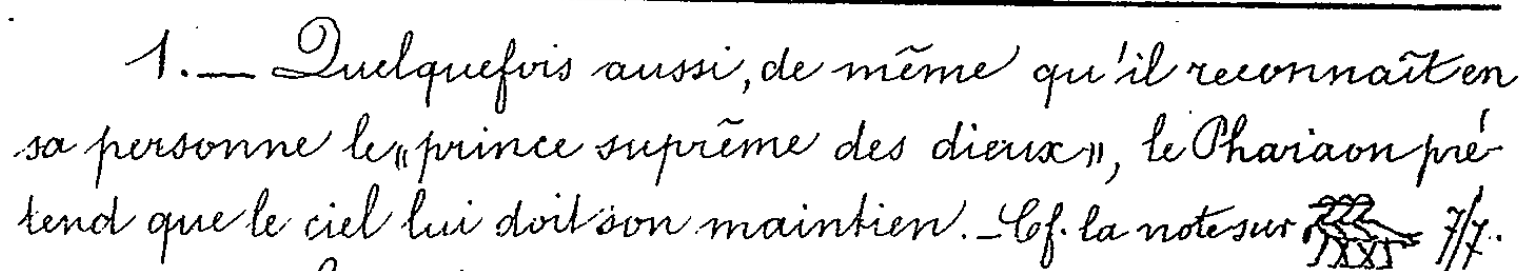 1. — Quelquefois aussi, de même qu'il reconnaît en
sa personne le «prince suprême des dieux», le Pharaon pré-
tend que le ciel lui doit son maintien. — Cf. la note sur 7/7.